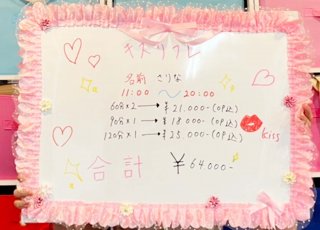 キスリフレ
名前 さりな
11:00 〜 20:00
60分×2 → ¥21.000-(OP込)
90分×1 → ¥18.000-(OP込)
120分×1 → ¥25.000-(OP込)
kiss
合計 ¥64.000-